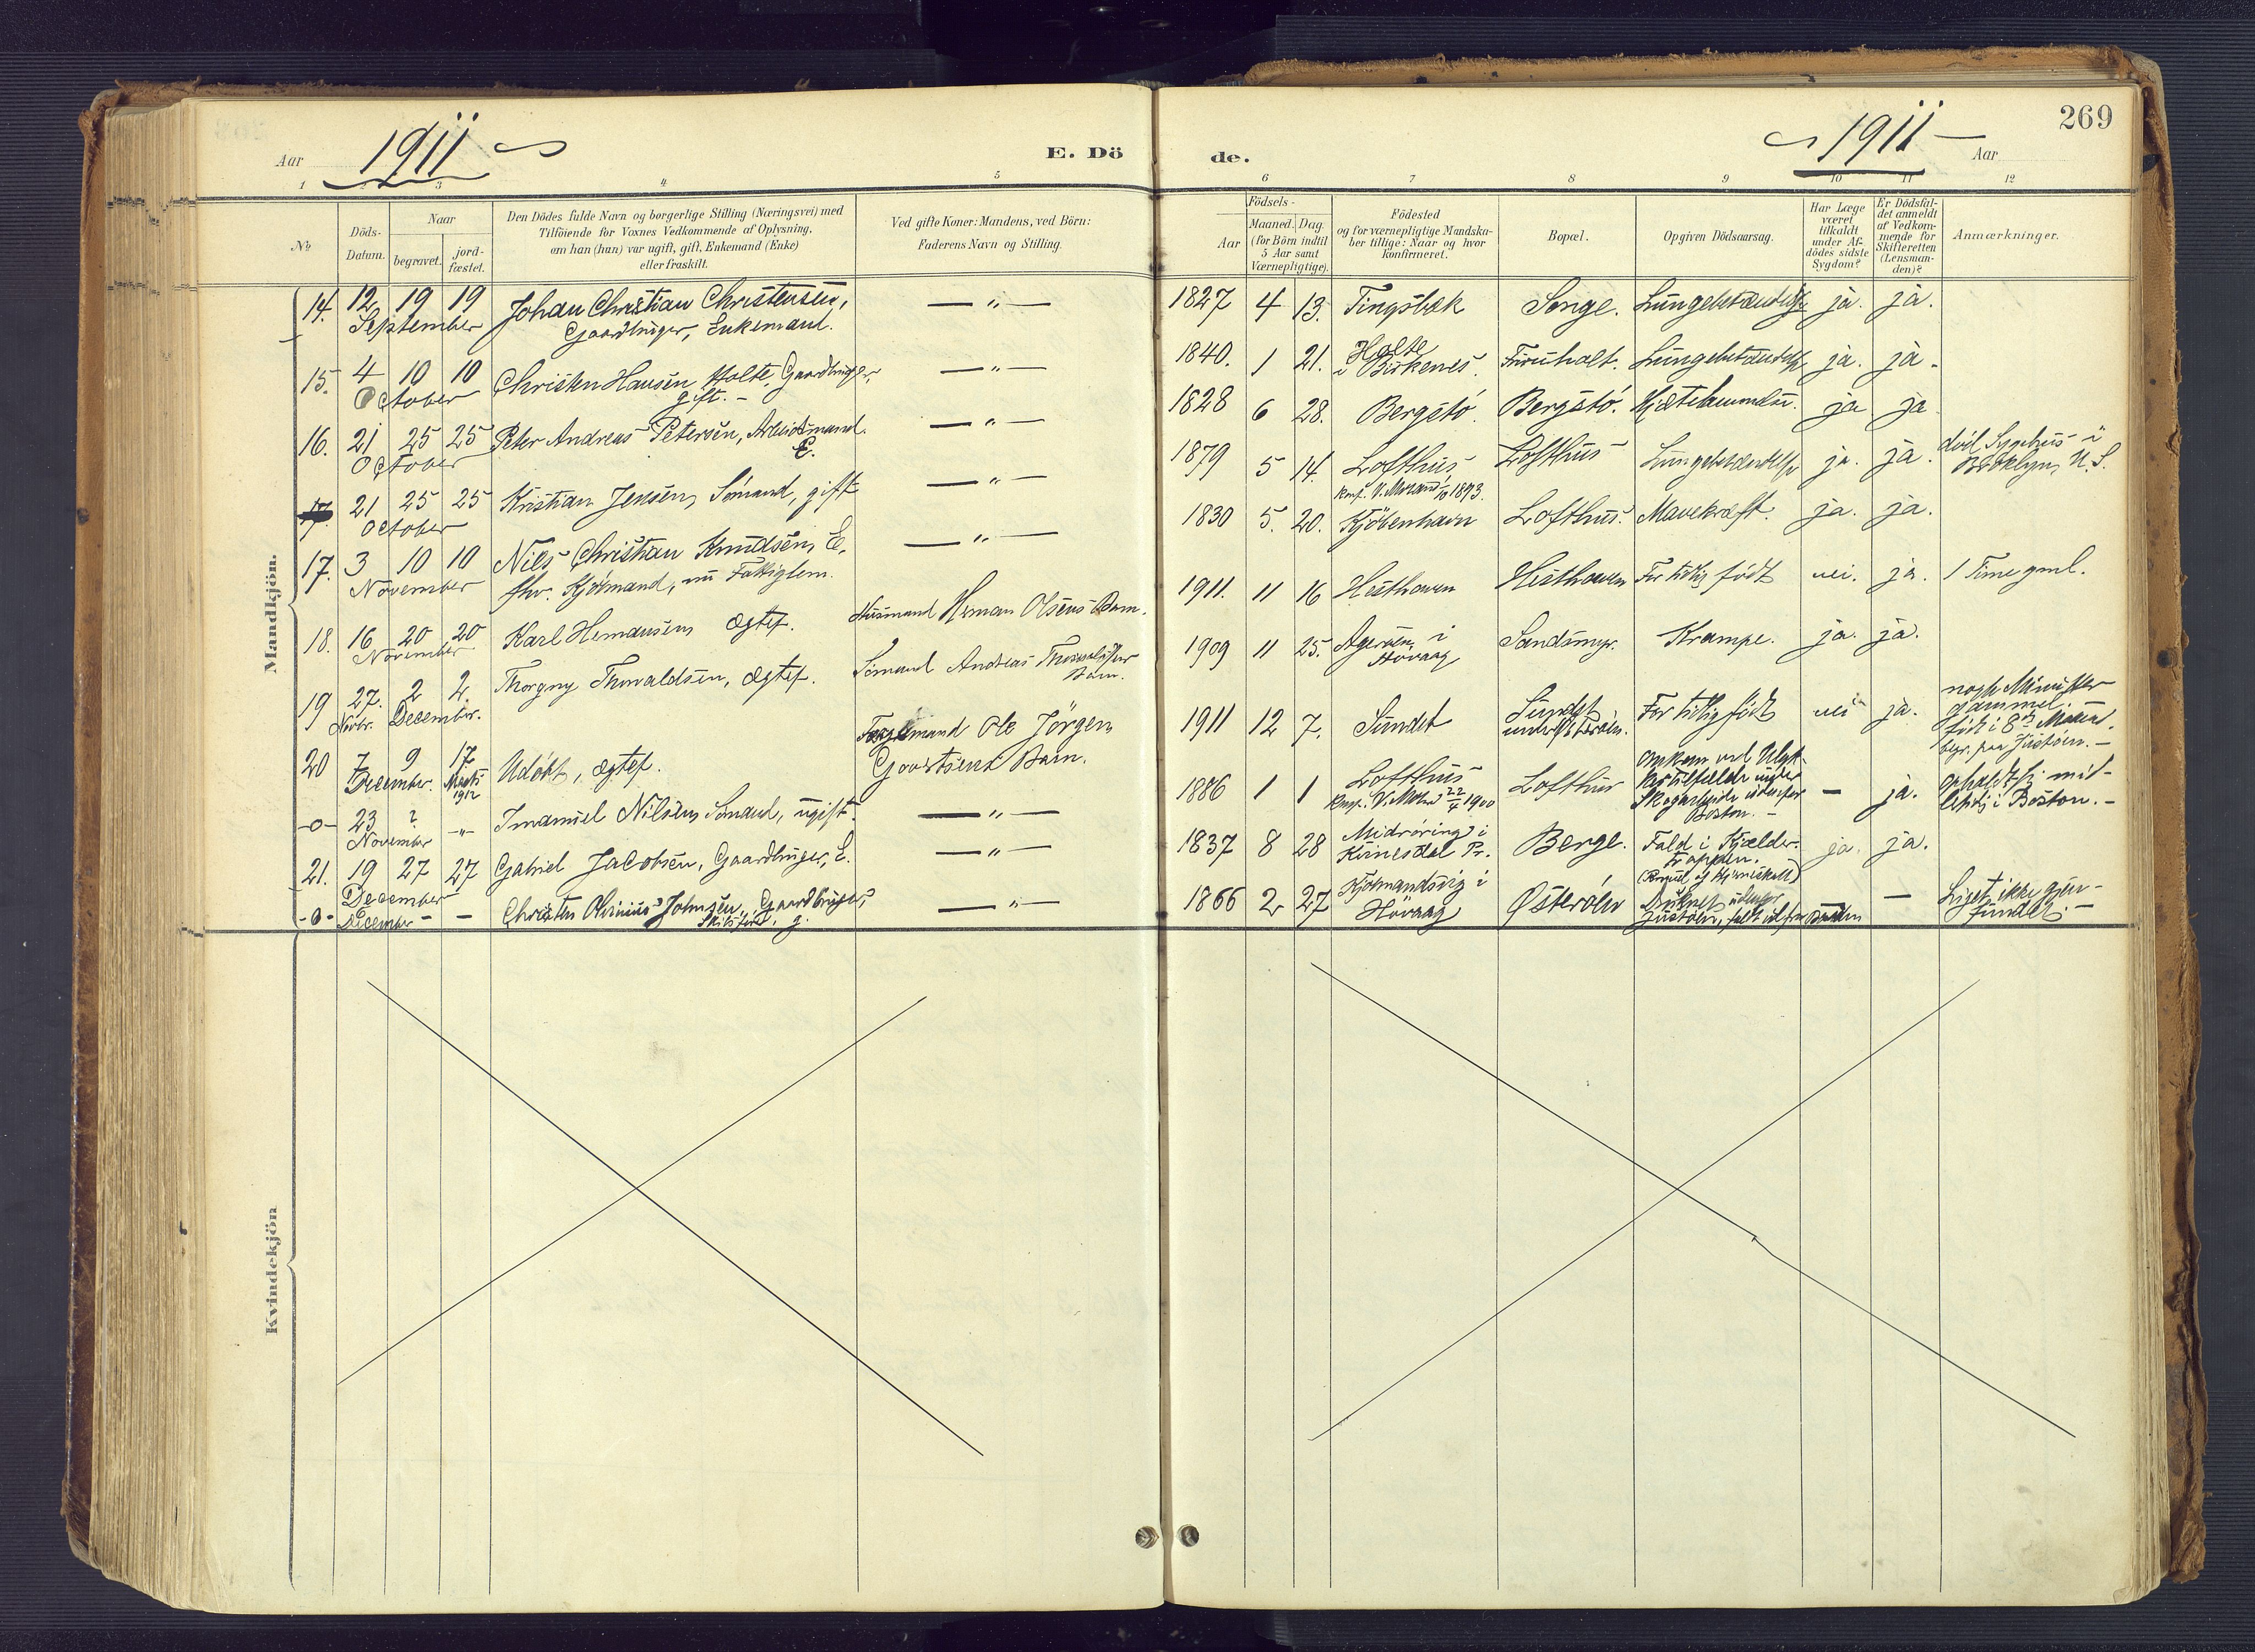 Aar 1911
E. Dö
1 2 3 4 5
№
Döds-
Datum.
Naar
begravet.
jord-
fæstet.
Den Dödes fulde Navn og borgerlige Stilling (Næringsvei) med
Tilföiende for Voxnes Vedkommende af Oplysning,
om han (hun) var ugift, gift, Enkemand (Enke)
eller fraskilt.
Ved gifte Koner: Mandens, ved Börn:
Faderens Navn og Stilling.
Mandkjön.
14. 12 19 19 Johan Christian Christensen, — „ —
September Gaardbruger, Enkemand.
15. 4 10 10 Christen Hansen Holte, Gaardbruger, — „ —
October gift. -
16. 21 25 25 Peter Andreas Petersen, Arbeidsmand. — „ —
October E.
17. 21 25 25 Kristian Jensen, Sömand, gift — „ —
October
17. 3 10 10 Nils Christian Knudsen, E. — „ —
November fhv. Kjöbmand, nu Fattiglem.
18. 16 20 20 Karl Hermansen ægtef. Husmand Herman Olsens Barn.
November
19 27. 2 2. Thorgny Thorvaldsen, ægtef. Sömand Andreas
Novbr. December. Barn.
20 7 9 17 Udöbt, ægtef. Ole Jörgen
December. Marts Barn.
1912
-o- 23 ? -„- Imanuel Nilsen, Sömand, ugift. — „ —
November
21. 19 27 27 Gabriel Jacobsen, Gaardbruger, E. — „ —
December
-o- December - - Christen Olvinius Johnsen, Gaardbruger, — „ —
g.
Kvindekjön
de.
1911 Aar
269
6 7 8 9 10 11 12
Aar
Födsels-
Maaned. Dag.
(for Börn indtil
5 Aar samt
Værnepligtige).
Födested
og for værnepligtige Mandska-
ber tillige: Naar og hvor
konfirmeret.
Bopæl.
Opgiven Dödsaarsag.
Har Læge
været
tilkaldt
under Af-
dödes sidste
Sygdom?
Er Dödsfal-
det anmeldt
af Vedkom-
mende for
Skifteretten
(Lensman-
den)?
Anmærkninger.
1827 4 13. Tingsbæk Songe. Lungebetændelse ja. ja.
1840. 1 21. Holte
i Birkenes. Furuholt. Lungebetændelse ja. ja.
1828 6 28. Bergstö. Bergstö. ja ja
1879 5 14. Lofthus Lofthus Lungebetændelse ja. ja. död Sygehus i
Konf. V. Moland 1893. Brooklyn, U.S.
1830 5. 20. Kjöbenhavn Lofthus. Mavekræft. ja. ja.
1911. 11 16 Hesthaven Hesthaven For tidlig födt nei. ja. 1 Time gml.
1909 11 25. Ageröen i
Hövaag Sandsmyr. Krampe. ja. ja.
1911 12 7. Sundet Sundet
under Österöen. For tidlig födt nei ja. nogle Minutter
gammel.
födt i 8de Maaned.
begr. paa Justöen. -
1886 1 1 Lofthus Lofthus Omkom ved Ulyk-
kestilfælde under
Skogarbeide udenfor
Boston. - — ja. opholdt sig mid-
lertdg i Boston. -
Konf. V. Moland 1900
1837 8 28 i
Kvinesdal Pr. Berge. Fald i Kjælder-
trappen. ja. ja.
(Brud af Hjerneskall)
1866 2 27 Kjömandsvig i
Hövaag Österöen Druknet udenfor
Justöen, — Liget ikke gjen-
fundet. -